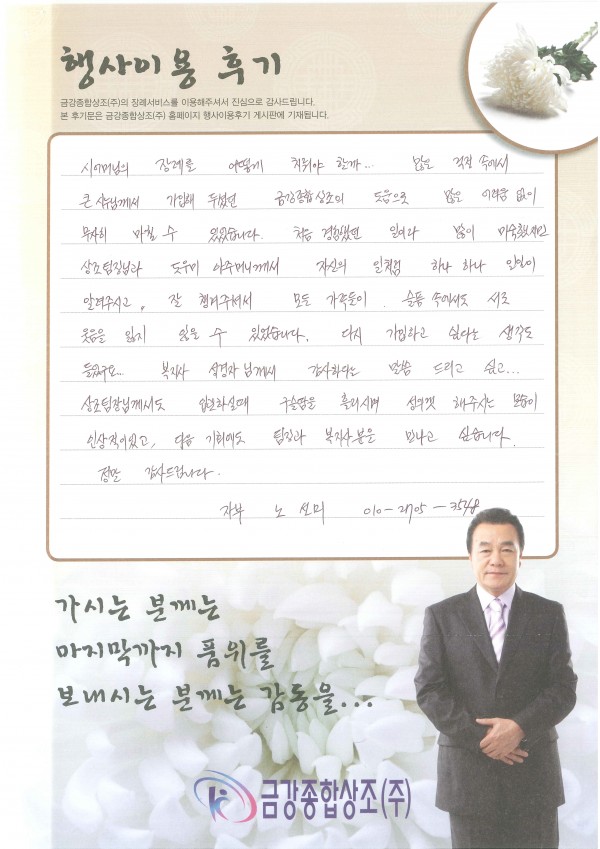 행사이용 후기
금강종합상조(주)의 장례서비스를 이용해주셔서 진심으로 감사드립니다.
본 후기문은 금강종합상조(주) 홈페이지 행사이용후기 게시판에 기재됩니다.
시어머님의 장례를 어떻게 치뤄야 할까... 많은 걱정 속에서
큰 사님께서 가입해 두셨던 금강종합상조의 도움으로 많은 어려움 없이
무사히 마칠 수 있었습니다. 처음 경험했던 일이라 많이 미숙했지만
상조팀장님과 도우미 아주머니께서 자신의 일처럼 하나 하나 일일이
알려주시고, 잘 챙겨주셔서 모든 가족들이 슬픔 속에서도 서로
웃음을 잃지 않을 수 있었습니다. 다시 가입하고 싶다는 생각도
들었구요... 복지사 님께서 감사하다는 말씀 드리고 싶고...
상조팀장님께서도 입관하실때 구슬땀을 흘리시며 성의껏 해주시는 모습이
인상적이었고, 다음 기회에도 팀장과 복지사분은 만나고 싶습니다.
정말 감사드립니다.
자부 노 선미 010-2705-3548
가시는 분께는
마지막까지 품위를
보내시는 분께는 감동을...
금강종합상조(주)